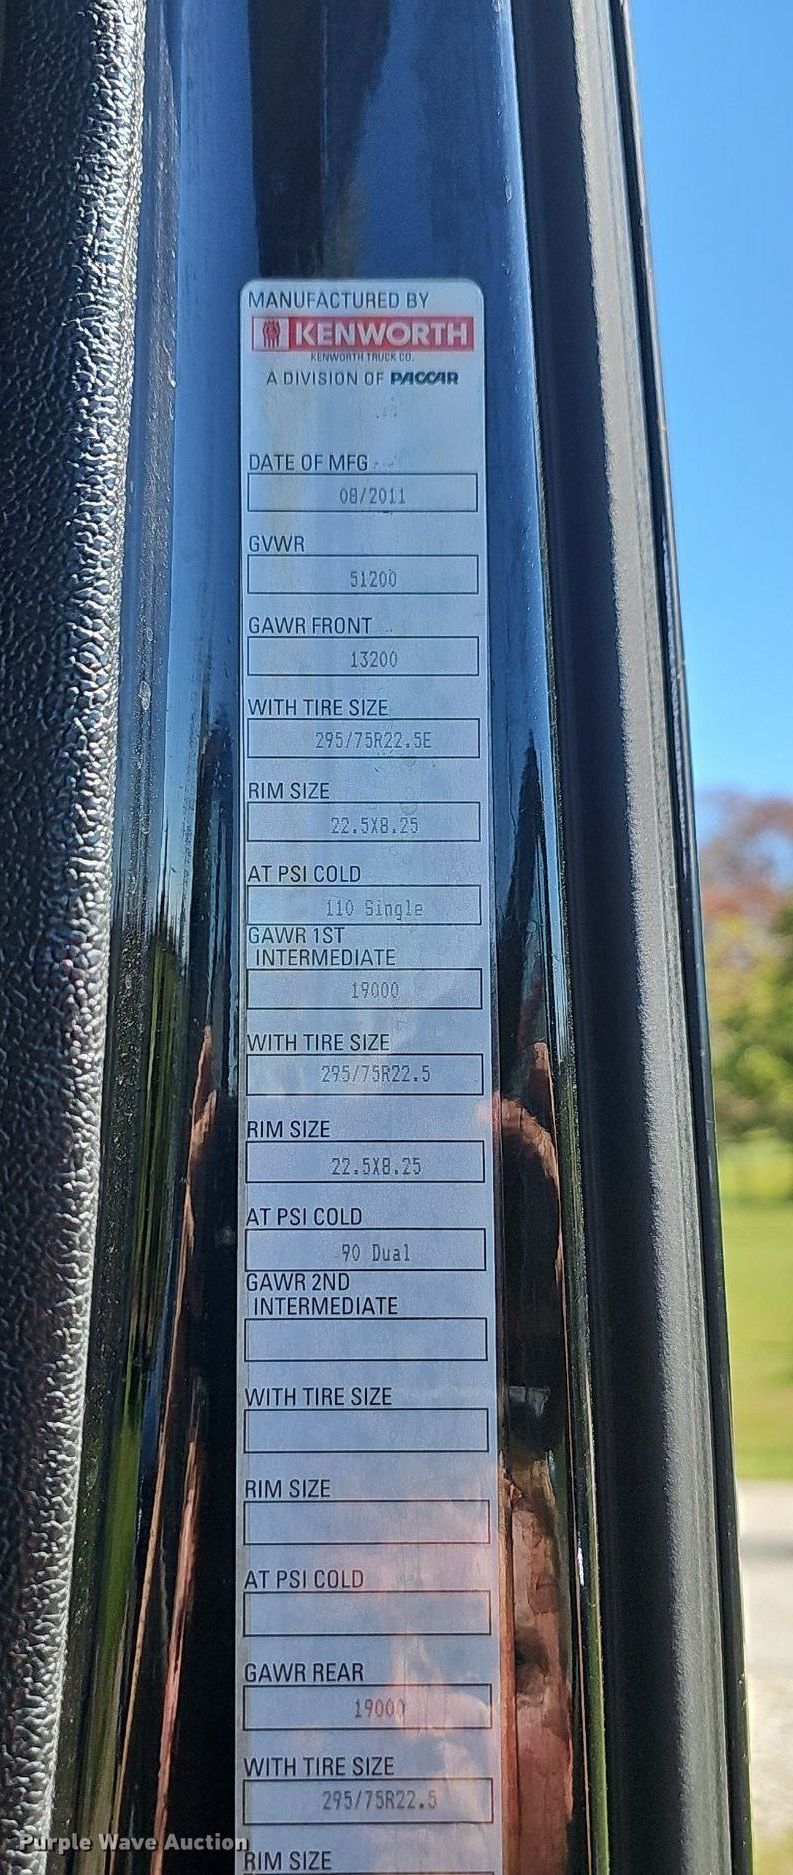 MANUFACTURED BY
KENWORTH
KENWORTH TRUCK CO.
A DIVISION OF PACCAR
DATE OF MFG
08/2011
GVWR
51200
GAWR FRONT
13200
WITH TIRE SIZE
295/75R22.5E
RIM SIZE
22.5X8.25
AT PSI COLD
110 Single
GAWR 1ST
INTERMEDIATE
19000
WITH TIRE SIZE
295/75R22.5
RIM SIZE
22.5X8.25
AT PSI COLD
90 Dual
GAWR 2ND
INTERMEDIATE
WITH TIRE SIZE
RIM SIZE
AT PSI COLD
GAWR REAR
19000
WITH TIRE SIZE
295/75R22.5
RIM SIZE
Purple Wave Auction